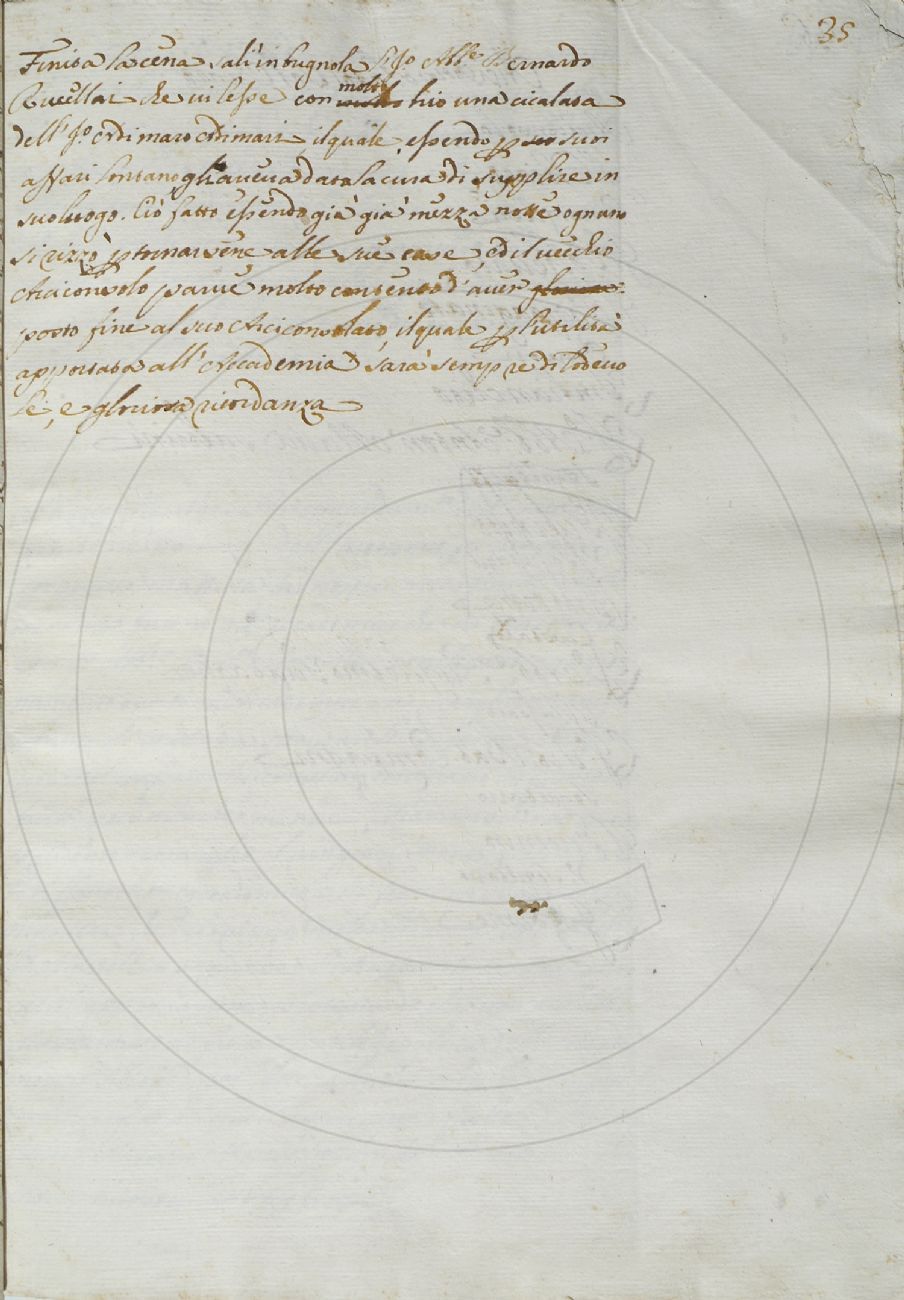 35
Finita la cena salì in bugnola il Sig.re Abb.e Bernardo
Rucellai che vi lesse con molto brio una cicalata
dell' Sig.re Ardimano Ardimani, il quale, essendo per suoi
affari lontano gli aveva data la cura di supplire in
suo luogo. Ciò fatto essendo già già mezza notte ognuno
si rizzò p tornarsene alle sue case, ed il vecchio
Arciconsolo parve molto contento d'aver
posto fine al suo Arciconsolato, il quale p l'utilità
apportata all'Accademia sarà sempre di lodevo
le, e gloriosa ricordanza